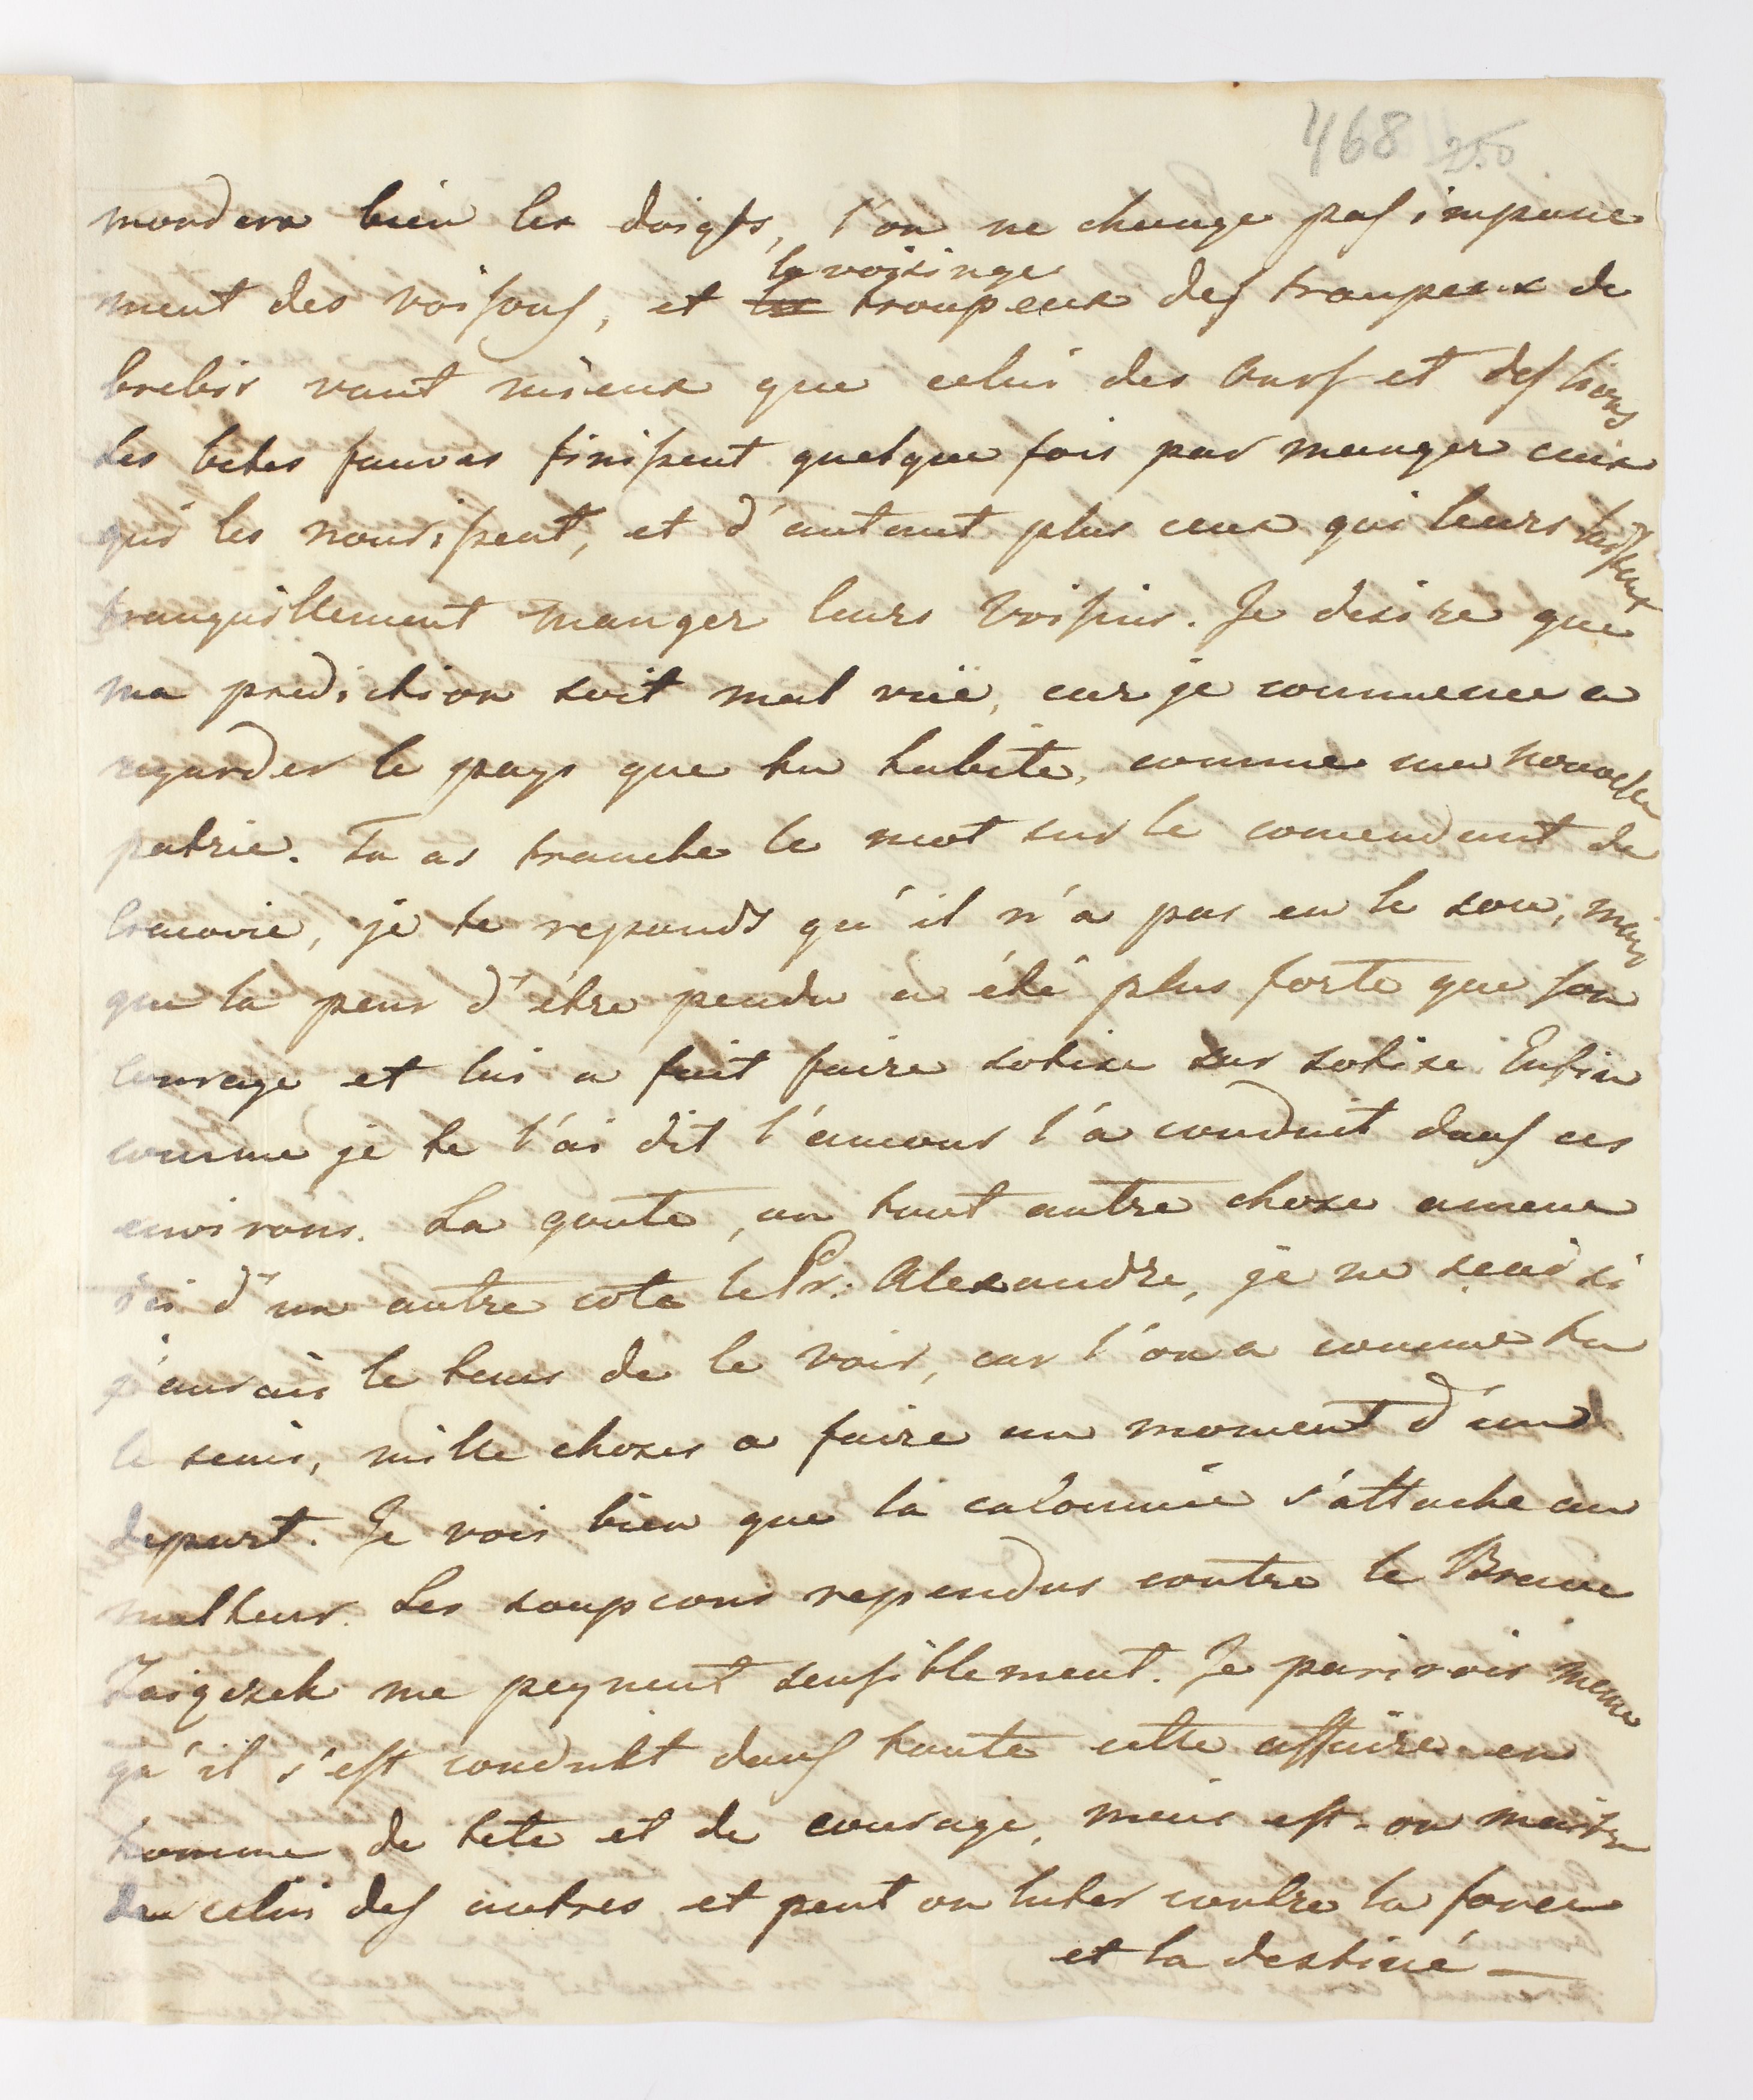 468 250
mordera bien les doigts, l'on ne change pas impune
ment des voisons, et les troupeux des troupeux de
le voisinage
brebis vaut mieux que celui des ours et des lions
Les betes fauves finissent quelque fois par manger ceux
qui les nourissent, et d'autant plus ceux qui leurs laissent
tranquillement manger leurs voisins. Je desire que
ma prediction soit mal vüe, car je commence a
regarder le pays que tu habite, comme ma nouvelle
patrie. Tu as tranche le mot sur le comendant de
Cracovie, je te reponds qu'il n'a pas eu le sou, mais
que la peur d'être pendu a été plus forte que son
courage et lui a fait faire sotise sur sotise. Enfin
comme je te l'ai dit l'amour l'a conduit dans ces
environs. La goute, ou tout autre chose amene
ici d'un autre cote le Pr: Alexandre, je ne scai si
j'aurais le tems de le voir, car l'on a comme tu
le scais, mille choses a faire au moment d'un
depart. Je vois bien que la calomnie s'attache au
malheur. Les soupcons rependus contre le Brave
Zaigczek me peynent sensiblement. Je parirois meme
qu'il s'est conduit dans toute cette affaire en
homme de tete et de courage, mais est-on maitre
de celui des autres et peut on luter contre la force
et la destiné —